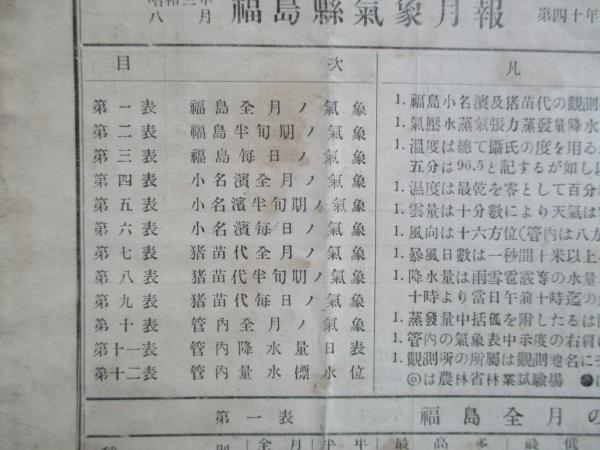 昭和三年
八月
福島縣氣象月報
第四十年
目次
第一表 福島全月ノ氣象
第二表 福島半旬期ノ氣象
第三表 福島每日ノ氣象
第四表 小名濱全月ノ氣象
第五表 小名濱半旬期ノ氣象
第六表 小名濱每日ノ氣象
第七表 猪苗代全月ノ氣象
第八表 猪苗代半旬期ノ氣象
第九表 猪苗代每日ノ氣象
第十表 管內全月ノ氣象
第十一表 管內降水量日表
第十二表 管內量水標水位
凡
1. 福島小名濱及猪苗代の觀測
1. 氣壓水蒸氣張力蒸發量降水
1. 溫度は總て攝氏の度を用る
五分は96.5と記するが如し以
1. 濕度は最乾を零として百分
1. 雲量は十分數により天氣は
1. 風向は十六方位(管內は八方
1. 暴風日數は一秒間十米以上
1. 降水量は雨雪雹霰等の水量
十時より當日午前十時迄の
1. 蒸發量中括弧を附したるは
1. 管內の氣象表中示度の右肩に
1. 觀測所の所屬は觀測地名に
◎は農林省林業試驗場 ●は
第一表 福島全月の
別 全月 半年 最高 多 最低